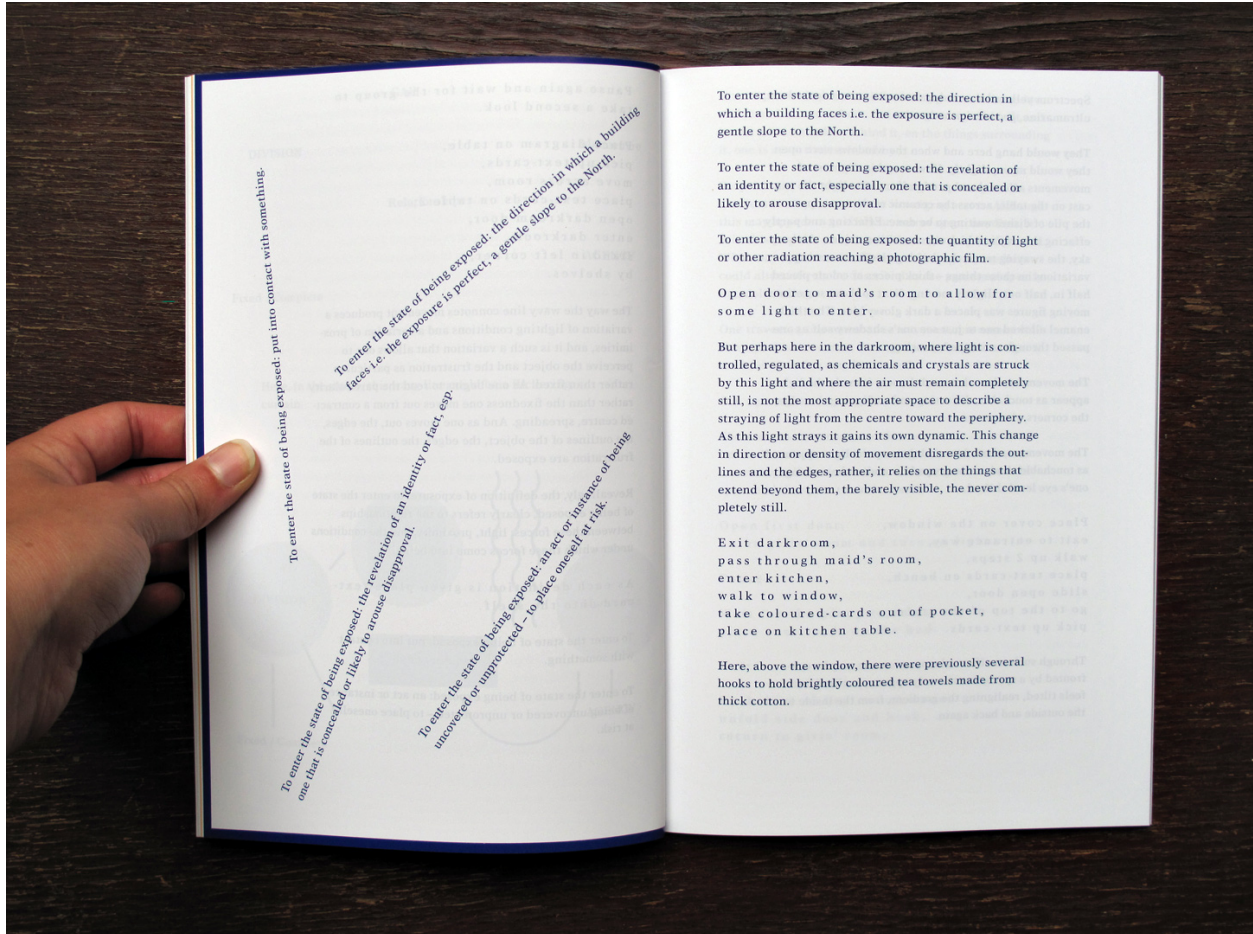 To enter the state of being exposed: put into contact with something.
To enter the state of being exposed: the direction in which a building
faces i.e. the exposure is perfect, a gentle slope to the North.
To enter the state of being exposed: the revelation of an identity or fact, esp.
one that is concealed or likely to arouse disapproval.
To enter the state of being exposed: an act or instance of being
uncovered or unprotected – to place oneself at risk.
To enter the state of being exposed: the direction in
which a building faces i.e. the exposure is perfect, a
gentle slope to the North.
To enter the state of being exposed: the revelation of
an identity or fact, especially one that is concealed or
likely to arouse disapproval.
To enter the state of being exposed: the quantity of light
or other radiation reaching a photographic film.
Open door to maid's room to allow for
some light to enter.
But perhaps here in the darkroom, where light is con-
trolled, regulated, as chemicals and crystals are struck
by this light and where the air must remain completely
still, is not the most appropriate space to describe a
straying of light from the centre toward the periphery.
As this light strays it gains its own dynamic. This change
in direction or density of movement disregards the out-
lines and the edges, rather, it relies on the things that
extend beyond them, the barely visible, the never com-
pletely still.
Exit darkroom,
pass through maid's room,
enter kitchen,
walk to window,
take coloured-cards out of pocket,
place on kitchen table.
Here, above the window, there were previously several
hooks to hold brightly coloured tea towels made from
thick cotton.